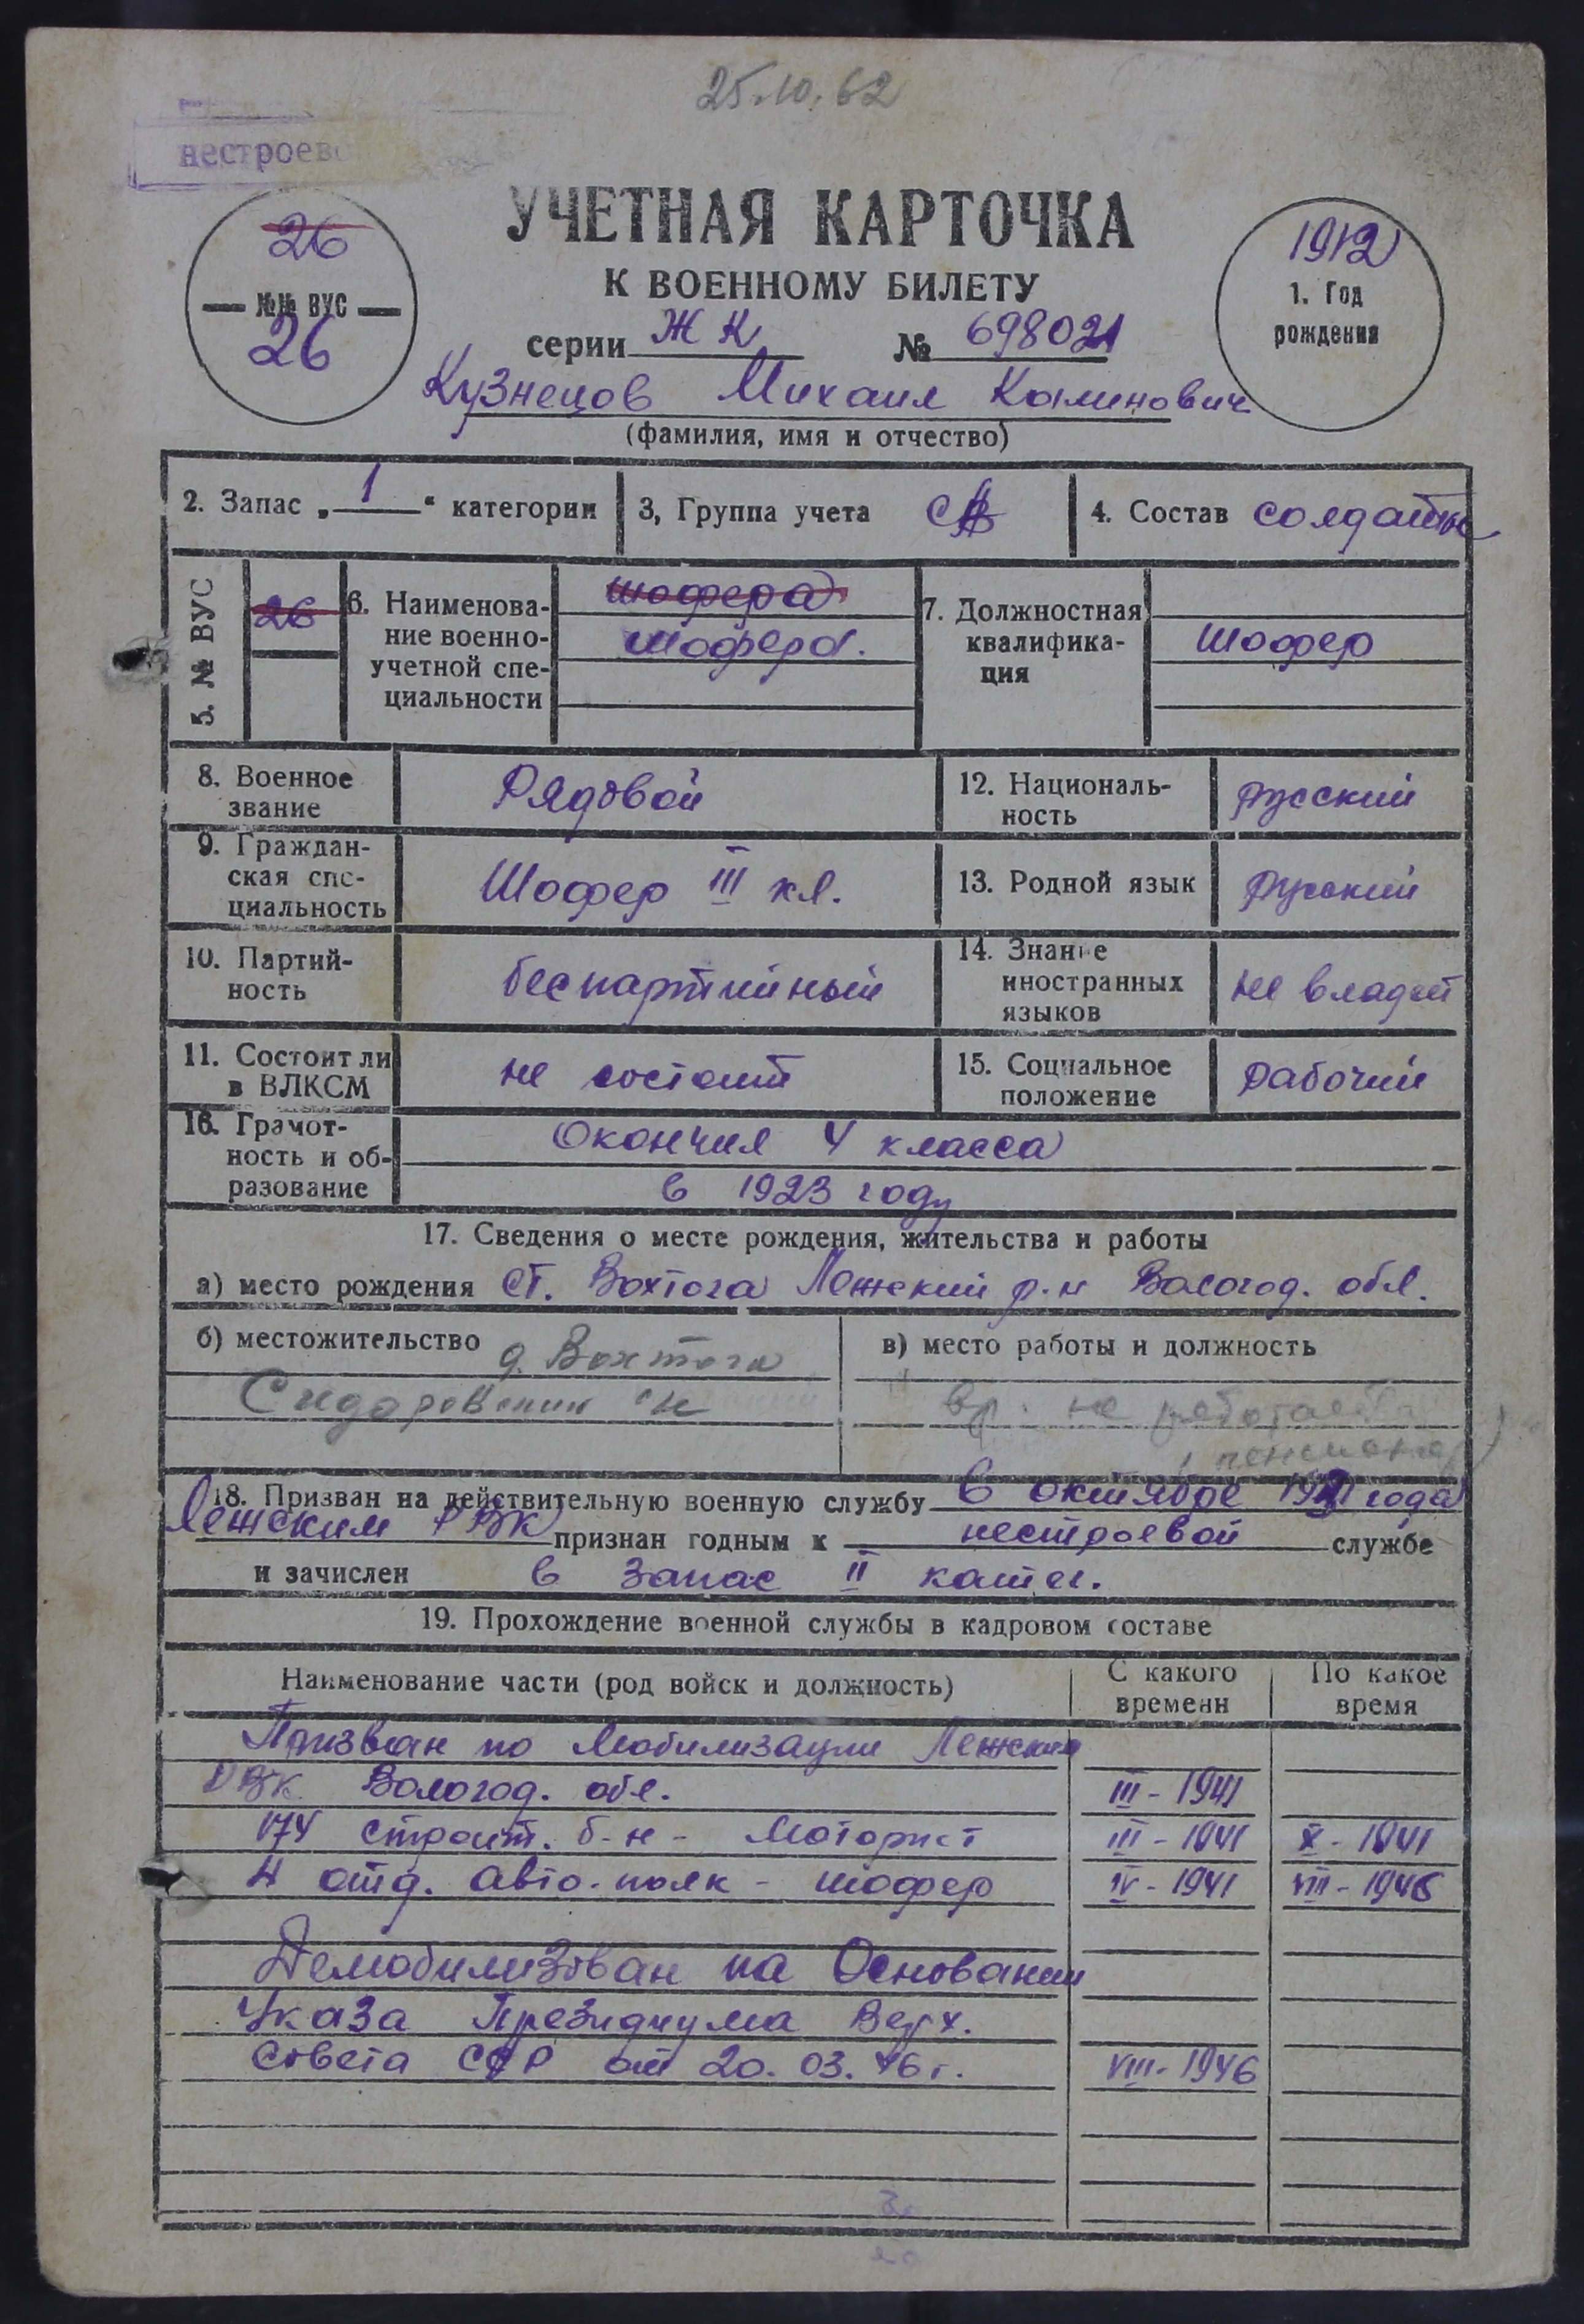 25.10.62
нестроев
УЧЕТНАЯ КАРТОЧКА
К ВОЕННОМУ БИЛЕТУ
серии ЖК № 698021
26
№№ ВУС
26
1912
1. Год
рождения
Кузнецов Михаил Калинович
(фамилия, имя и отчество)
2. Запас „1“ категории
3, Группа учета СА
4. Состав солдаты
5. № ВУС
26
6. Наименова-
ние военно-
учетной спе-
циальности
шофера
шофера.
7. Должностная
квалифика-
ция
Шофер
8. Военное
звание
Рядовой
12. Националь-
ность
русский
9. Граждан-
ская спе-
циальность
Шофер III кл.
13. Родной язык
русский
10. Партий-
ность
беспартийный
14. Знание
иностранных
языков
не владеет
11. Состоит ли
в ВЛКСМ
не состоит
15. Социальное
положение
рабочий
16. Грамот-
ность и об-
разование
Окончил 4 класса
в 1923 году
17. Сведения о месте рождения, жительства и работы
а) место рождения ст. Вохтога Лежский р-н Вологод. обл.
б) местожительство д. Вохтога
в) место работы и должность
вр. не работает
пенсионер)
18. Призван на действительную военную службу в октябре года
Лежским РВК признан годным к нестроевой службе
и зачислен в запас II катег.
19. Прохождение военной службы в кадровом составе
Наименование части (род войск и должность)
С какого
времени
По какое
время
Призван по мобилизации Лежским
РВК Вологод. обл. III - 1941
174 строит. б-н - Моторист III - 1941 X - 1941
4 отд. авто-полк - шофер IV - 1941 VIII - 1946
Демобилизован на Основании
Указа Президиума Верх.
Совета СССР от 20.03.46 г. VIII - 1946